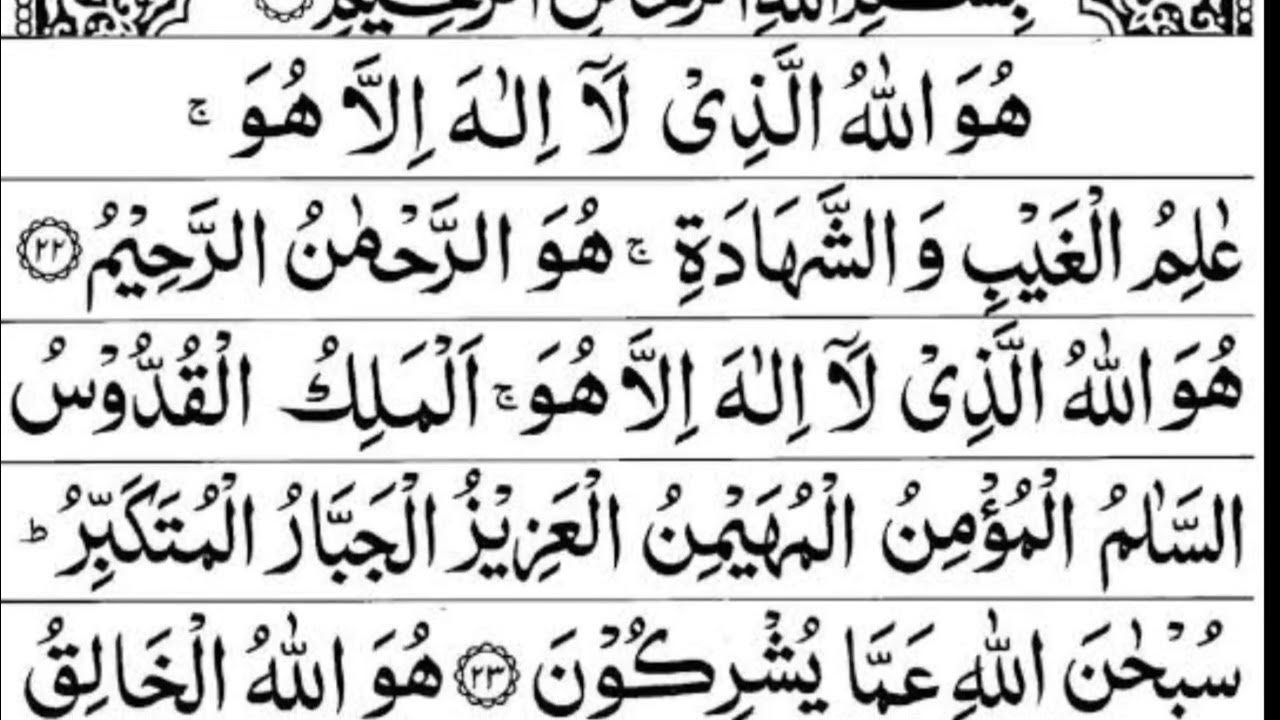 بِسْمِ اللهِ الرَّحْمٰنِ الرَّحِيْمِ
هُوَ اللهُ الَّذِىْ لَآ اِلٰهَ اِلَّا هُوَ ۚ
عٰلِمُ الْغَيْبِ وَ الشَّهَادَةِ ۚ هُوَ الرَّحْمٰنُ الرَّحِيْمُ ﴿٢٢﴾
هُوَ اللهُ الَّذِىْ لَآ اِلٰهَ اِلَّا هُوَ ۚ اَلْمَلِكُ الْقُدُّوْسُ
السَّلٰمُ الْمُؤْمِنُ الْمُهَيْمِنُ الْعَزِيْزُ الْجَبَّارُ الْمُتَكَبِّرُ ؕ
سُبْحٰنَ اللهِ عَمَّا يُشْرِكُوْنَ ﴿٢٣﴾ هُوَ اللهُ الْخَالِقُ